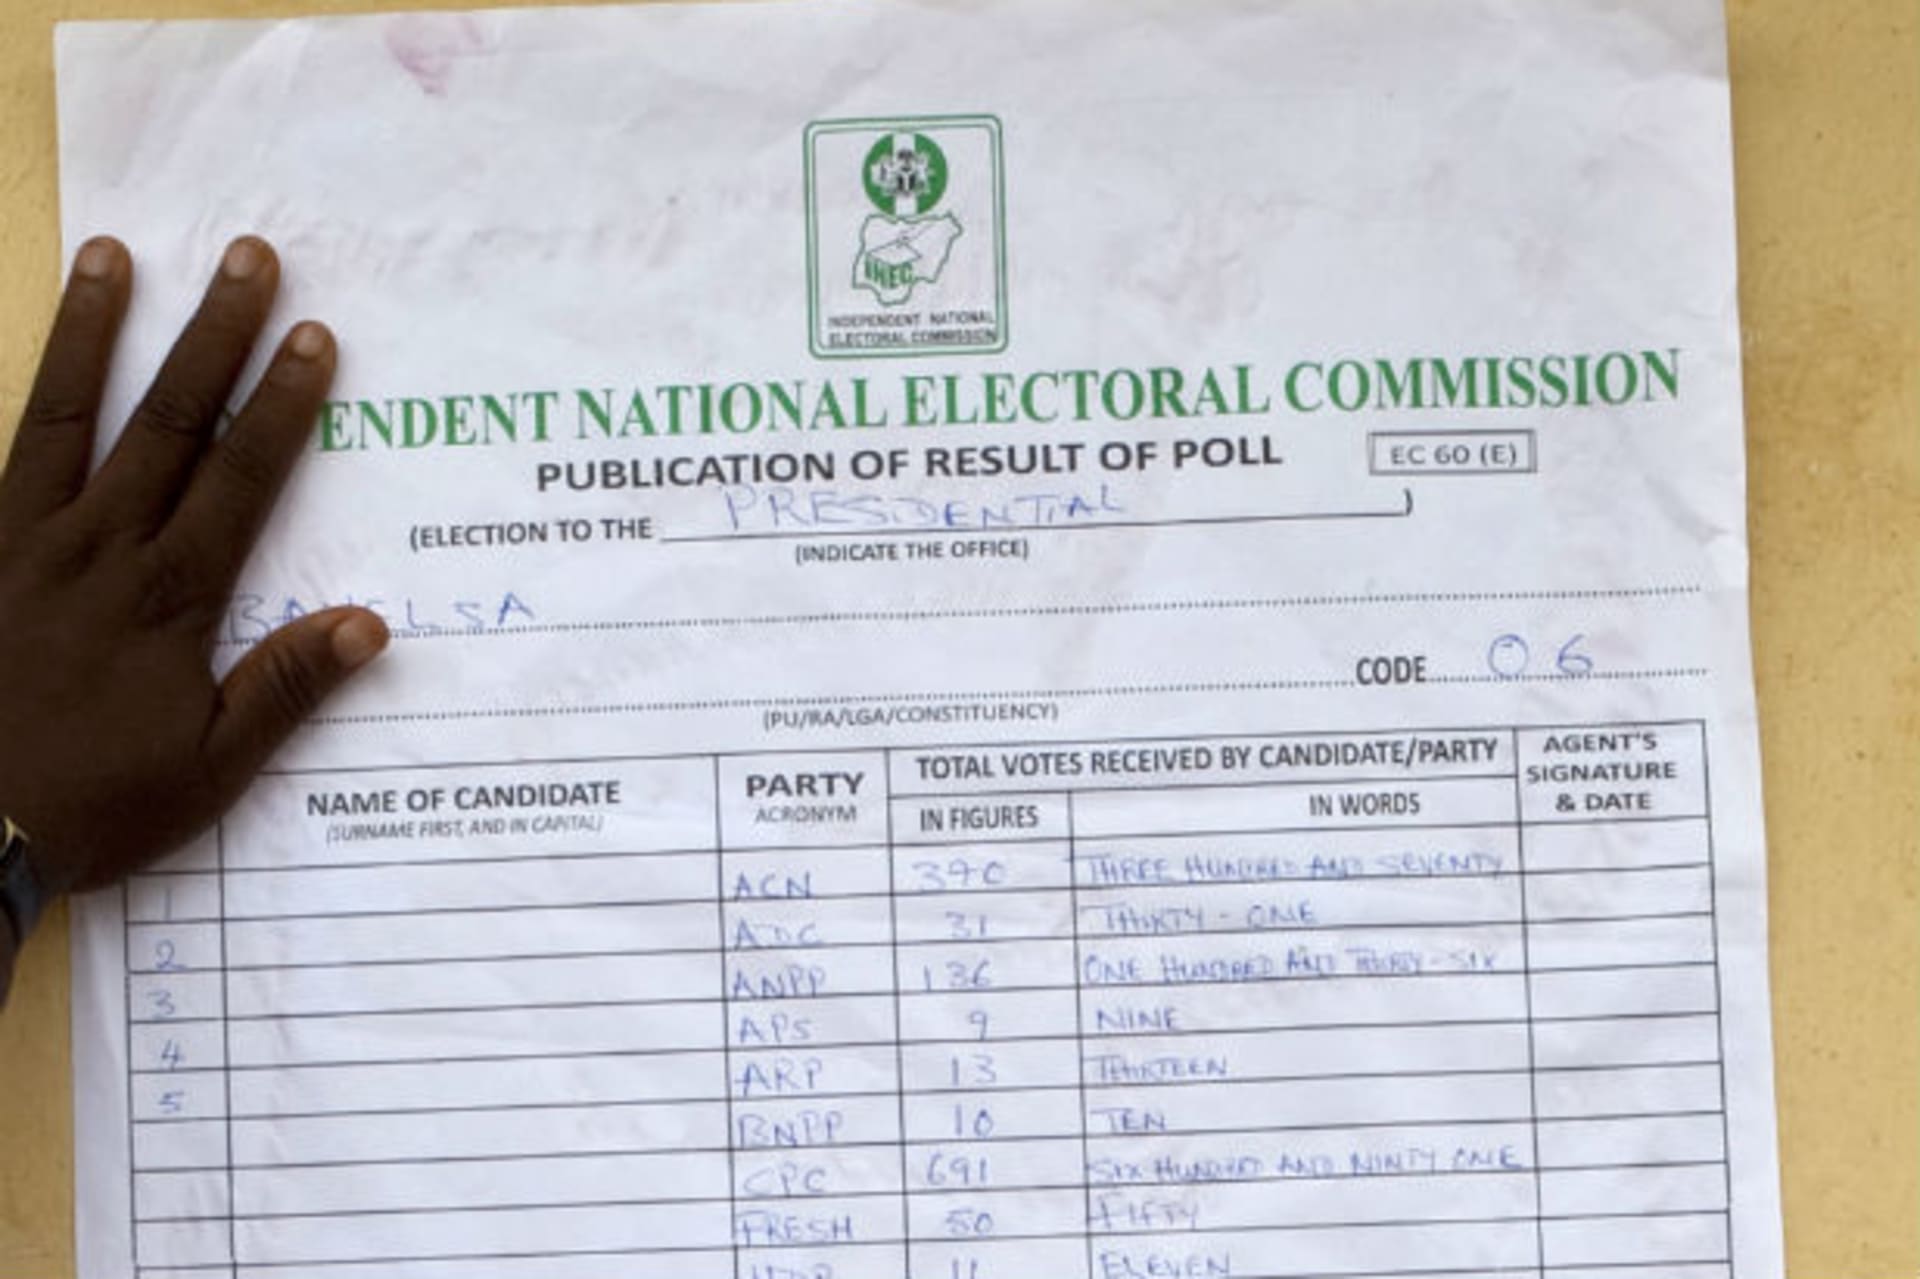 INEC
INDEPENDENT NATIONAL
ELECTORAL COMMISSION
ENDENT NATIONAL ELECTORAL COMMISSION
PUBLICATION OF RESULT OF POLL EC 60 (E)
(ELECTION TO THE PRESIDENTIAL)
(INDICATE THE OFFICE)
CODE 06
(PU/RA/LGA/CONSTITUENCY)
NAME OF CANDIDATE PARTY TOTAL VOTES RECEIVED BY CANDIDATE/PARTY AGENT'S
(SURNAME FIRST, AND IN CAPITAL) ACRONYM IN FIGURES IN WORDS SIGNATURE
& DATE
1 ACN 370 THREE HUNDRED AND SEVENTY
2 ADC 31 THIRTY-ONE
3 ANPP 136 ONE HUNDRED AND THIRTY-SIX
4 APS 9 NINE
5 ARP 13 THIRTEEN
BNPP 10 TEN
CPC 691 SIX HUNDRED AND NINTY ONE
FRESH 50 FIFTY
11 ELEVEN